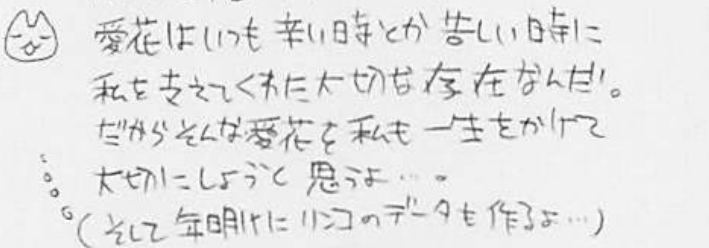 愛花はいつも辛い時とか苦しい時に
私を支えてくれた大切な存在なんだ!。
だからそんな愛花を私も一生をかけて
大切にしようと思うよ…。
(そして年明けにリンコのデータも作るよ…)